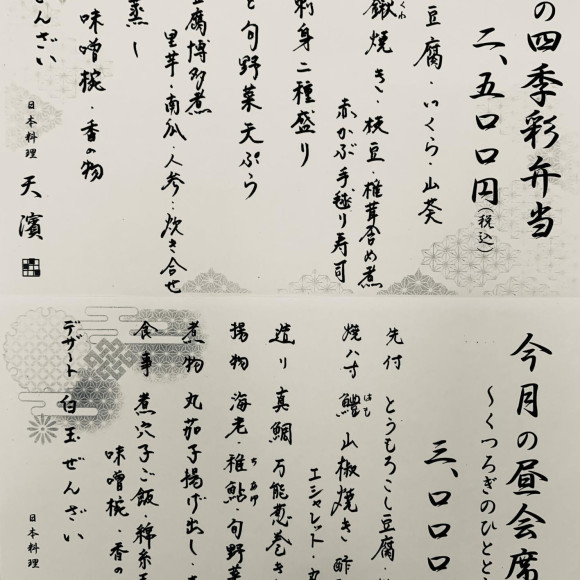 の四季彩弁当
二、五〇〇円(税込)
豆腐・いくら・山葵
鍬焼き・枝豆・椎茸含め煮
くわ
赤かぶ手毬り寿司
刺身二種盛り
と旬野菜天ぷら
豆腐博多煮
里芋・南瓜・人参・炊き合せ
蒸し
味噌椀・香の物
ぜんざい
日本料理 天濱
今月の昼会席
〜くつろぎのひとと
三、〇〇〇
先付 とうもろこし豆腐
焼八寸 鱧山椒焼き 酢
はも
エシャレット・丸
造り 真鯛 万能葱巻き
揚物 海老・稚鮎 旬野菜
ちあゆ
煮物 丸茄子揚げ出し・
食事 煮穴子ご飯・錦糸玉
味噌椀・香の
デザート 白玉ぜんざい
日本料理